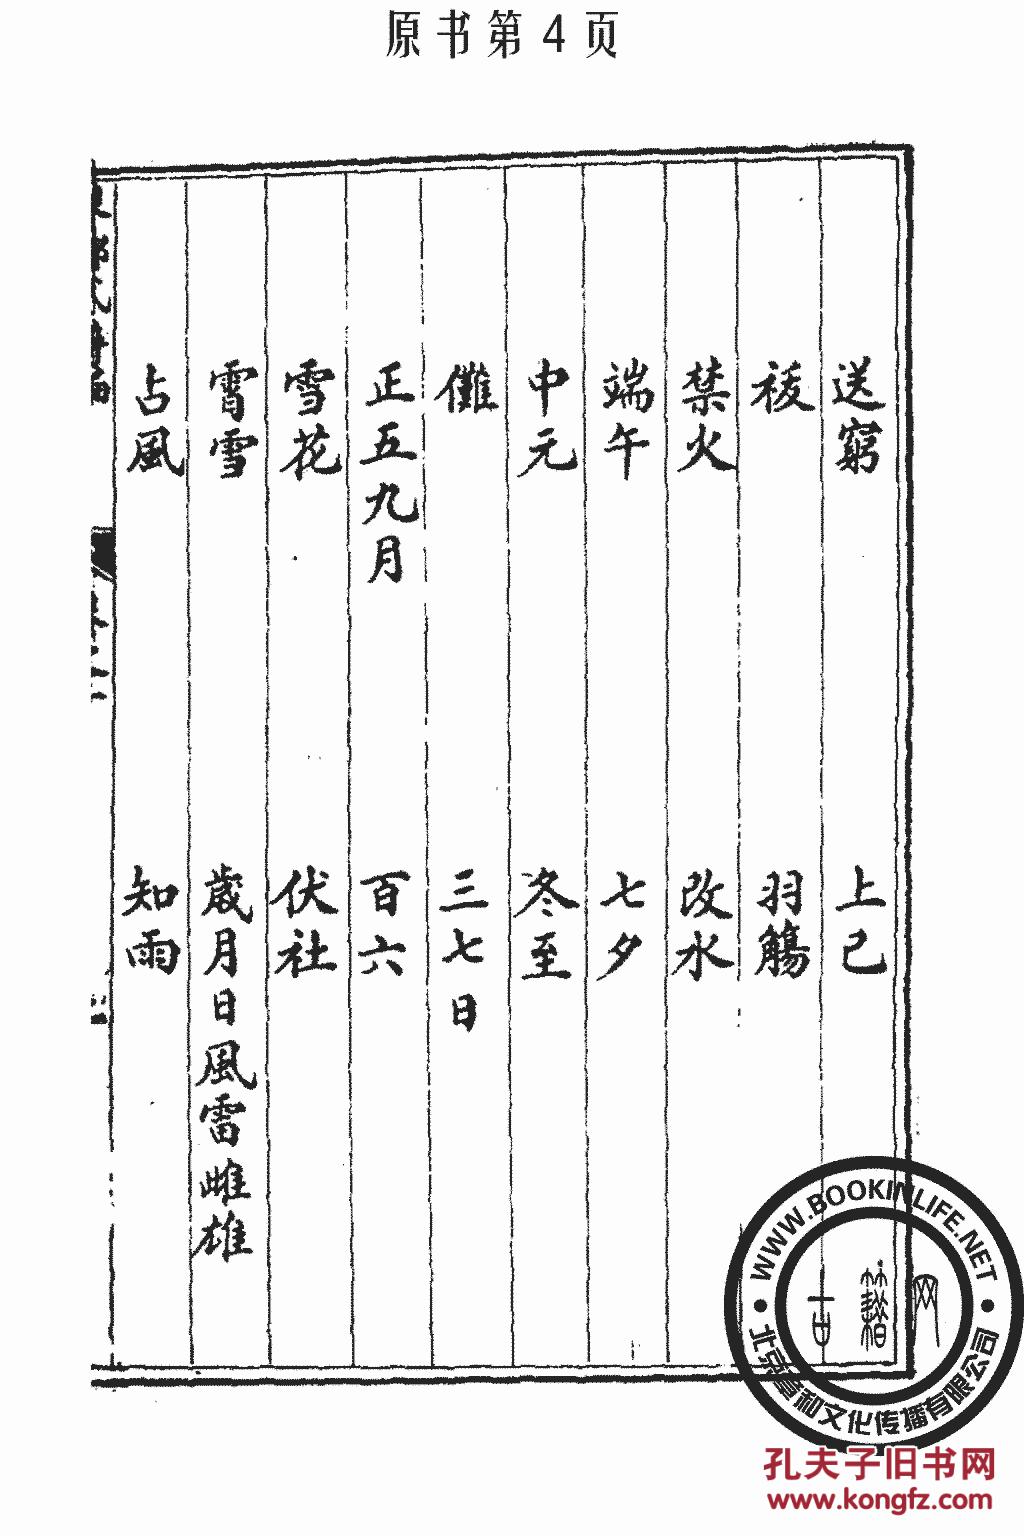 原书第 4 页
送窮 上己
祓 羽觴
禁火 改水
端午 七夕
中元 冬至
儺 三七日
正五九月 百六
雪花 伏社
霄雪 歲月日風雷雌雄
占風 知雨
WWW.BOOKINLIFE.NET
古籍网
文化传播有限公司
孔夫子旧书网
www.kongfz.com